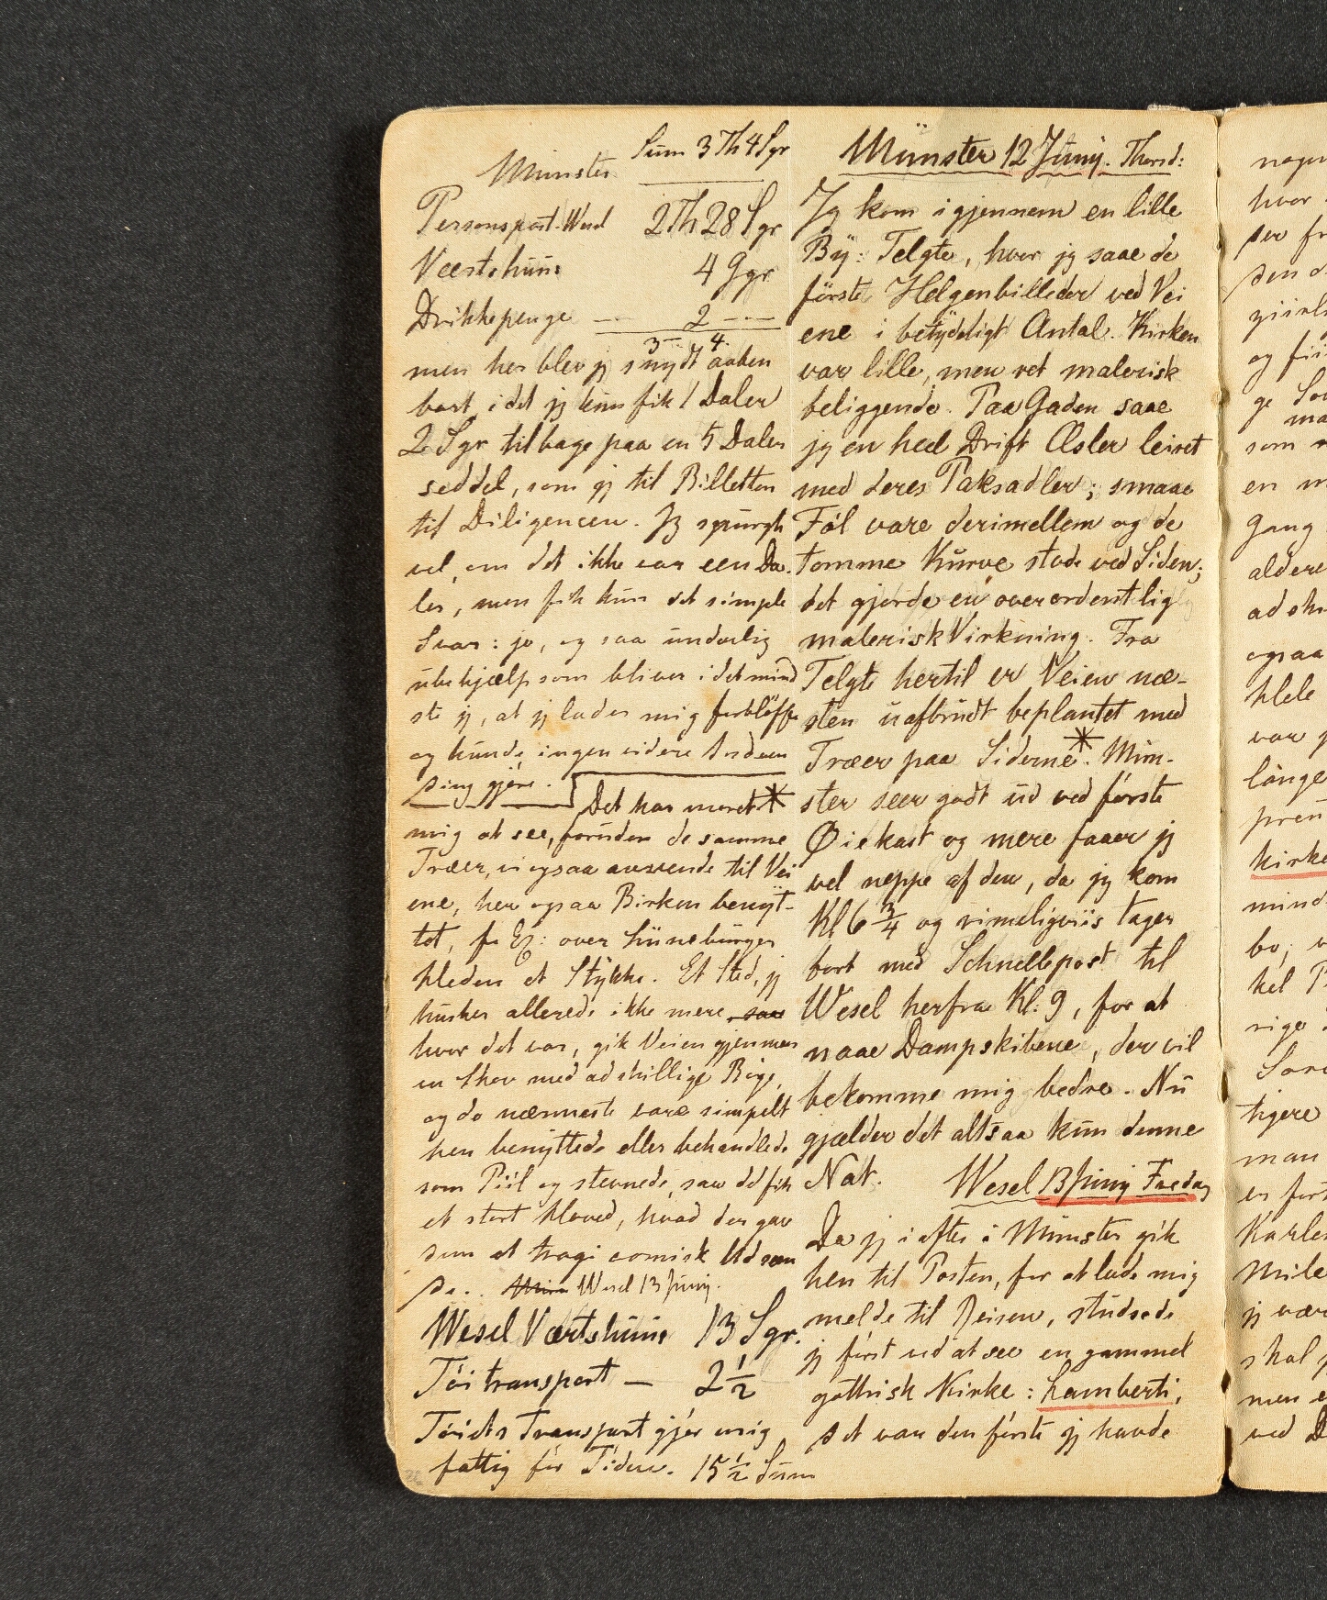 Sum 3 Th 4 Sgr
Münster
Personspost. Wesel 2 Th 28 Sgr
Værtshuus 4 Ggr
Drikkepenge — 2 —
3 4.
men her blev jg snydt aaben
bart, idet jg kun fik 1 Daler
2 Sgr tilbage paa en 5 Daler
seddel, som jg til Billetten
til Diligencen. Jg spurgte
vel, om det ikke var een Da-
ler, men fik kun det simple
Svar: jo, og saa underlig
ubehjælpsom bliver i det mind
ste jg, at jg lader mig forblöffe
og kunde ingen videre Indven
ding gjöre.
Det har moret *
mig at see, foruden de samme
Træer, vi ogsaa anvende til Vei
ene, her ogsaa Birken benyt-
tet, f. Ex: over Lüneburger
Heden et Stykke. Et Sted, jg
husker allerede ikke mere saa
hvor det var, gik Veien gjennem
en Skov med adskillige Böge,
og de nærmeste vare simpelt
hen benyttede eller behandlede
som Piil og stevnede, saa de fik
et stort Hoved, hvad der gav
dem et tragi comisk Udseen
de.. Wesel 13 Juny.
Wesel Værtshuus 13 Sgr.
Töi transport — 2 1/2
Töiets Transport gjör mig
fattig för Tiden. 15 1/2 Sum
Münster 12 Juny. Thorsd:
Jg kom igjennem en lille
By: Telgte, hvor jg saae de
förste Helgenbilleder ved Vei
ene i betydeligt Antal. Kirken
var lille, men ret malerisk
beliggende. Paa Gaden saae
jg en heel Drift Æsler leiret
med deres Paksadler; smaae
Föl vare derimellem og de
tomme Kurve stode ved Siden;
det gjorde en overordentlig
malerisk Virkning. Fra
Telgte hertil er Veien næ-
sten uafbrudt beplantet med
Træer paa Siderne*. Mün-
ster seer godt ud ved förste
Øiekast og mere faaer jg
vel neppe af den, da jg kom
Kl 6 3/4 og rimeligviis tager
bort med Schnellpost til
Wesel herfra Kl: 9, for at
naae Dampskibene, der vil
bekomme mig bedre. Nu
gjælder det altsaa kun denne
Nat. Wesel 13 Juny Fredag
Da jg i aftes i Münster gik
hen til Posten, for at lade mig
melde til Reisen, studsede
jg först ved at see en gammel
gothisk Kirke: Lamberti,
det var den förste jg havde
noget
hvor
der fr
og fii
som
en m
Gang
aldere
adsk
ogsaa
hele
var
længe
kirke
mind
bo; v
hel
tigere
man
er for
Karle
Mile
jg vær
skal
men e
ved D